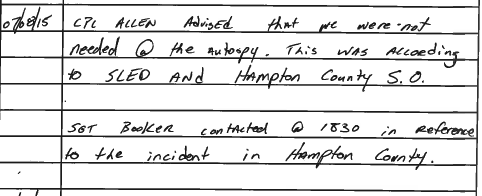 07/08/15 CPL ALLEN Advised that we were not
needed @ the autospy. This was accoeding
to SLED AND Hampton County S.O.
SGT Booker contacted @ 1830 in Reference
to the incident in Hampton County.